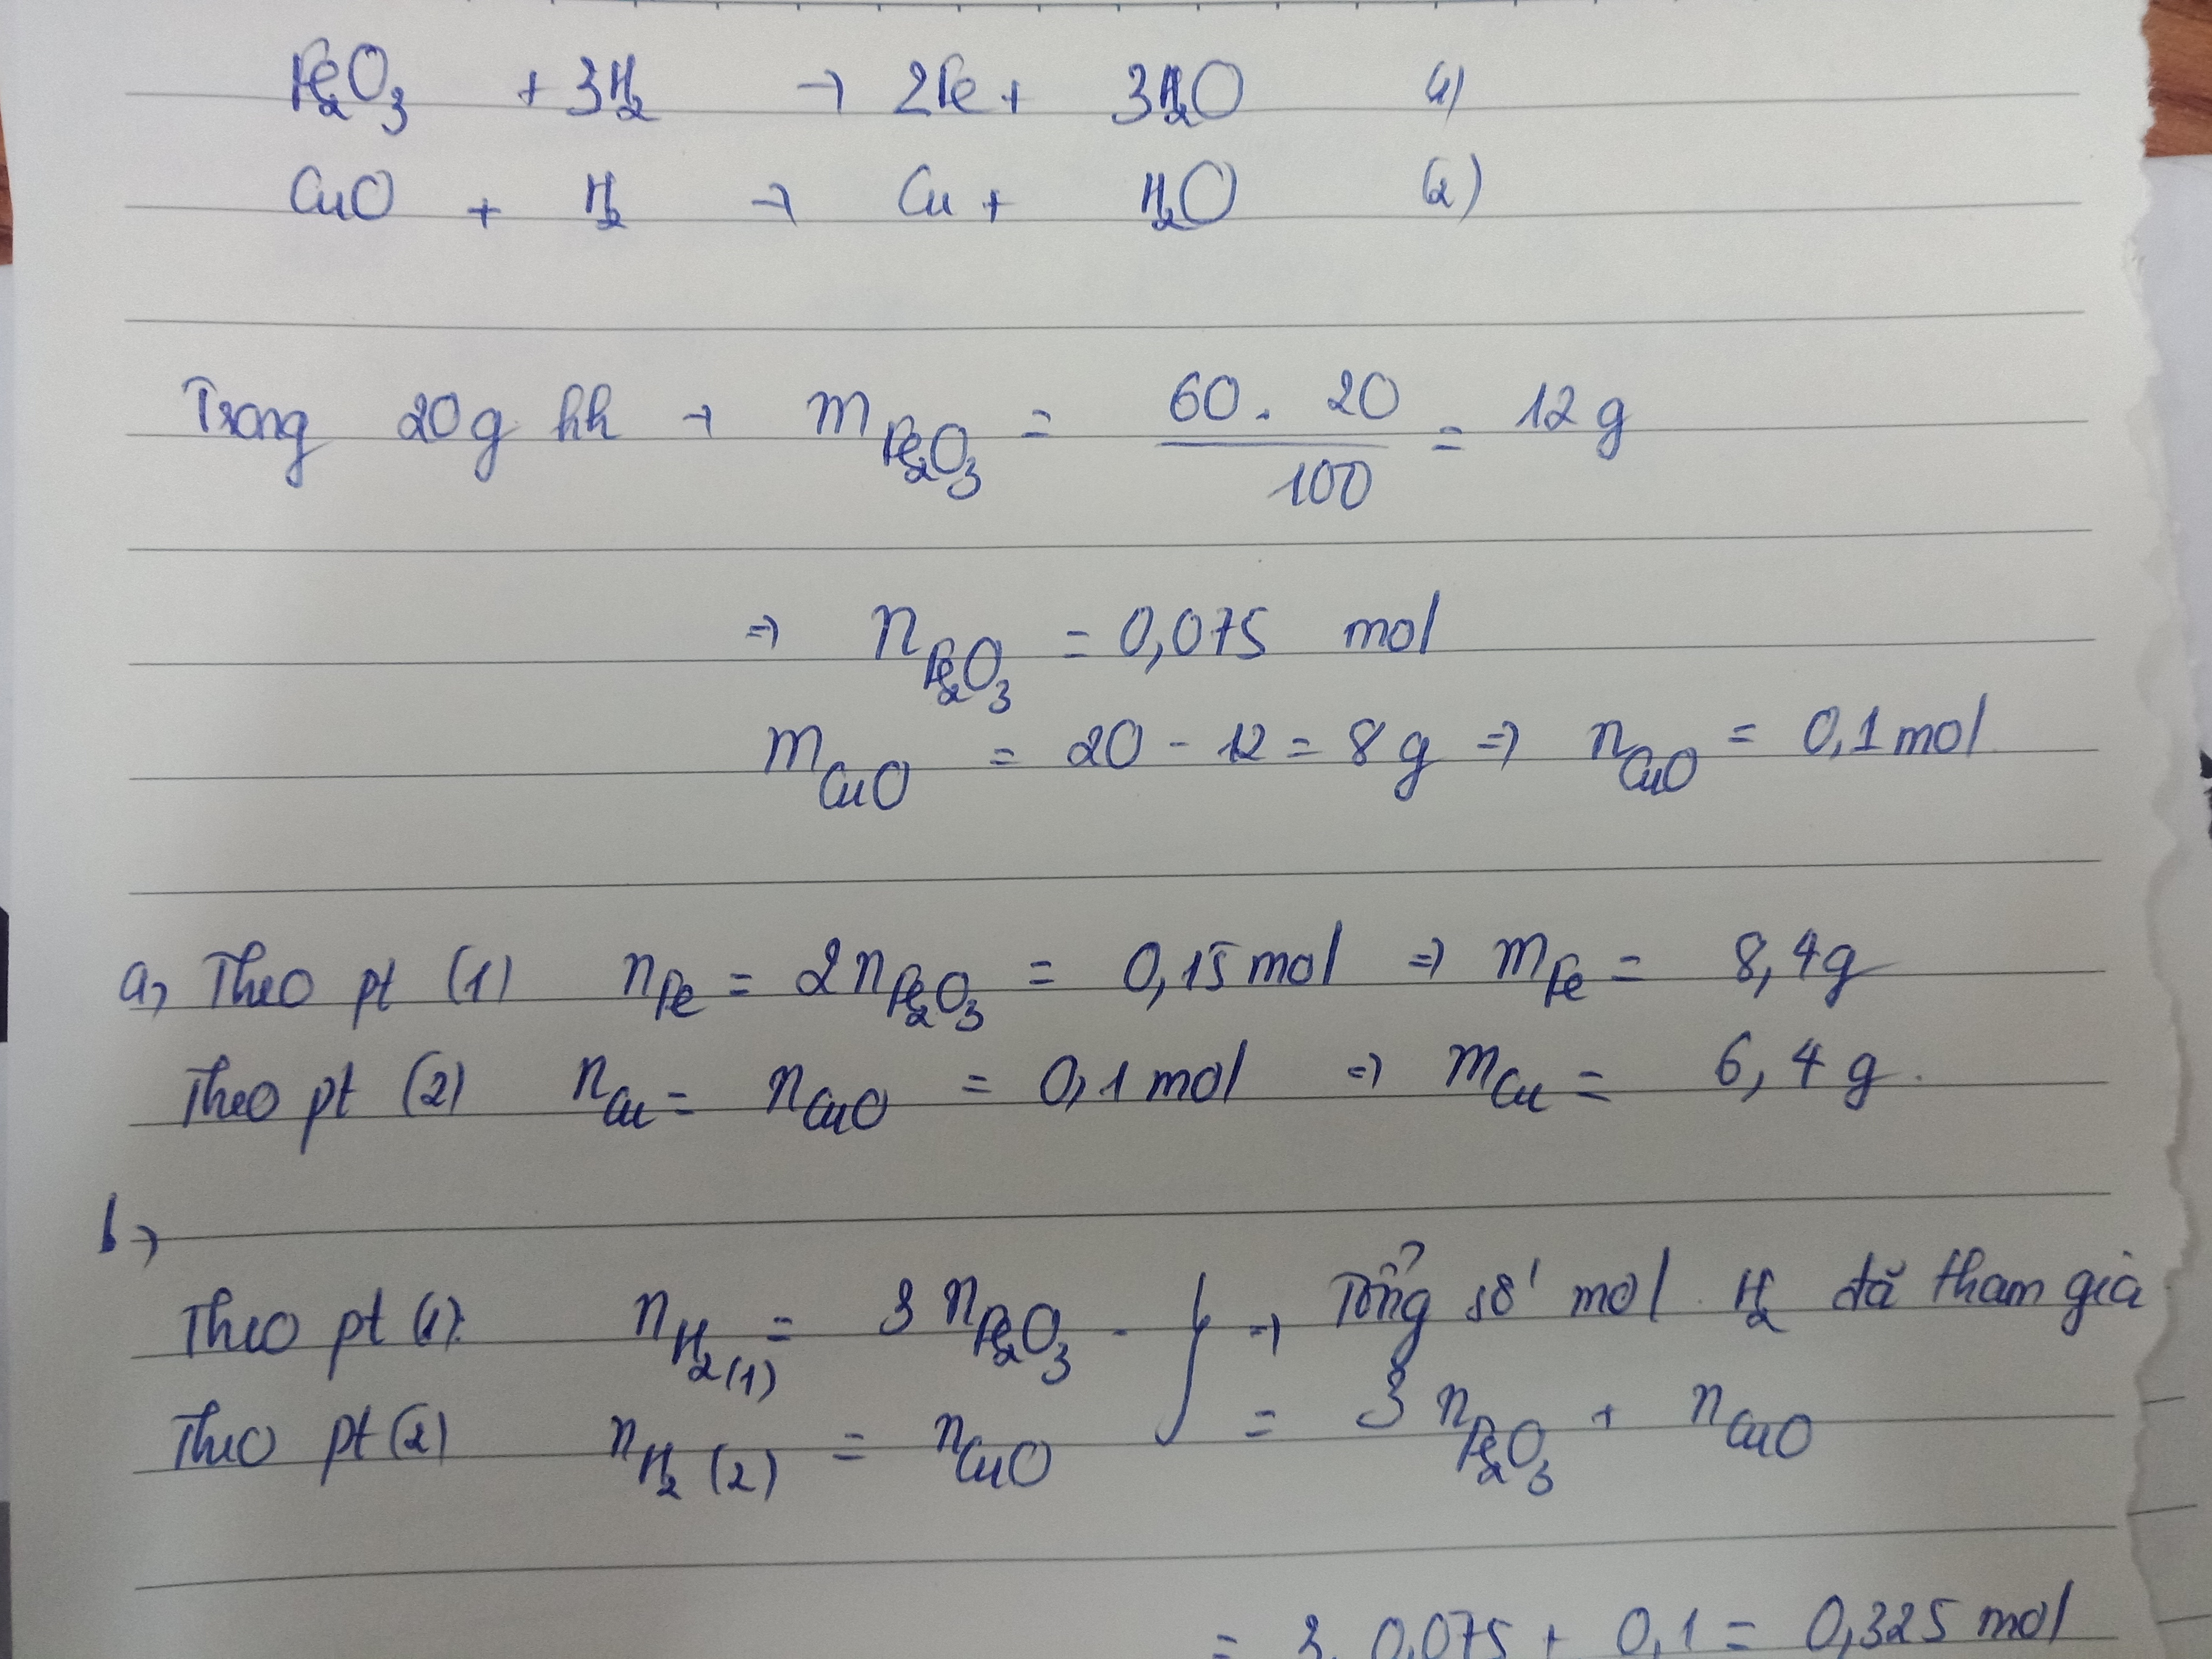 Fe₂O₃ + 3H₂ → 2Fe + 3H₂O (1)
CuO + H₂ → Cu + H₂O (2)
Trong 20g hh → m Fe₂O₃ = 60. 20 / 100 = 12 g
⇒ n Fe₂O₃ = 0,075 mol
m CuO = 20 - 12 = 8 g ⇒ n CuO = 0,1 mol
a, Theo pt (1) n Fe = 2 n Fe₂O₃ = 0,15 mol ⇒ m Fe = 8,4g
Theo pt (2) n Cu = n CuO = 0,1 mol ⇒ m Cu = 6,4 g.
b,
Theo pt (1): n H₂ (1) = 3 n Fe₂O₃ } ⇒ Tổng số mol H₂ đã tham gia
Theo pt (2) n H₂ (2) = n CuO = 3 n Fe₂O₃ + n CuO
= 3. 0,075 + 0,1 = 0,325 mol